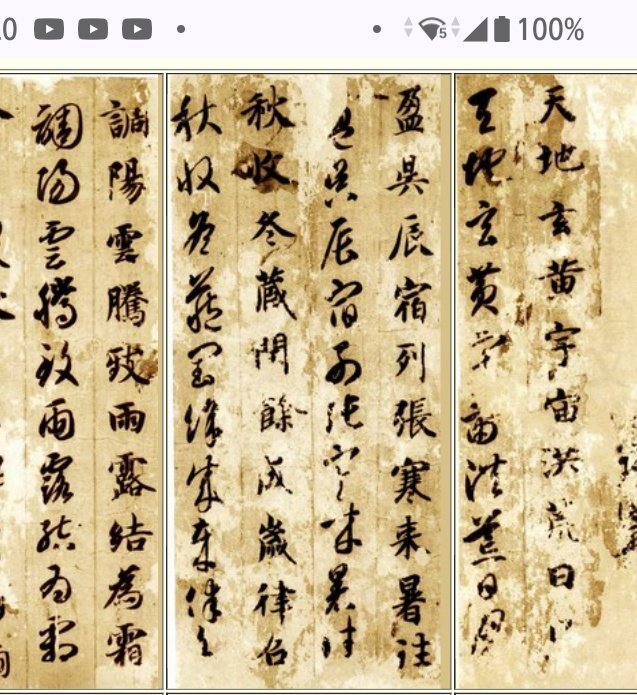 100%
天地玄黄宇宙洪荒日月
天地玄黄宇宙洪荒日月
盈昃辰宿列張寒来暑往
盈昃辰宿列張寒来暑往
秋收冬蔵閏餘成歳律召
秋收冬蔵閏餘成歳律召
調陽雲騰致雨露結為霜
調陽雲騰致雨露結為霜